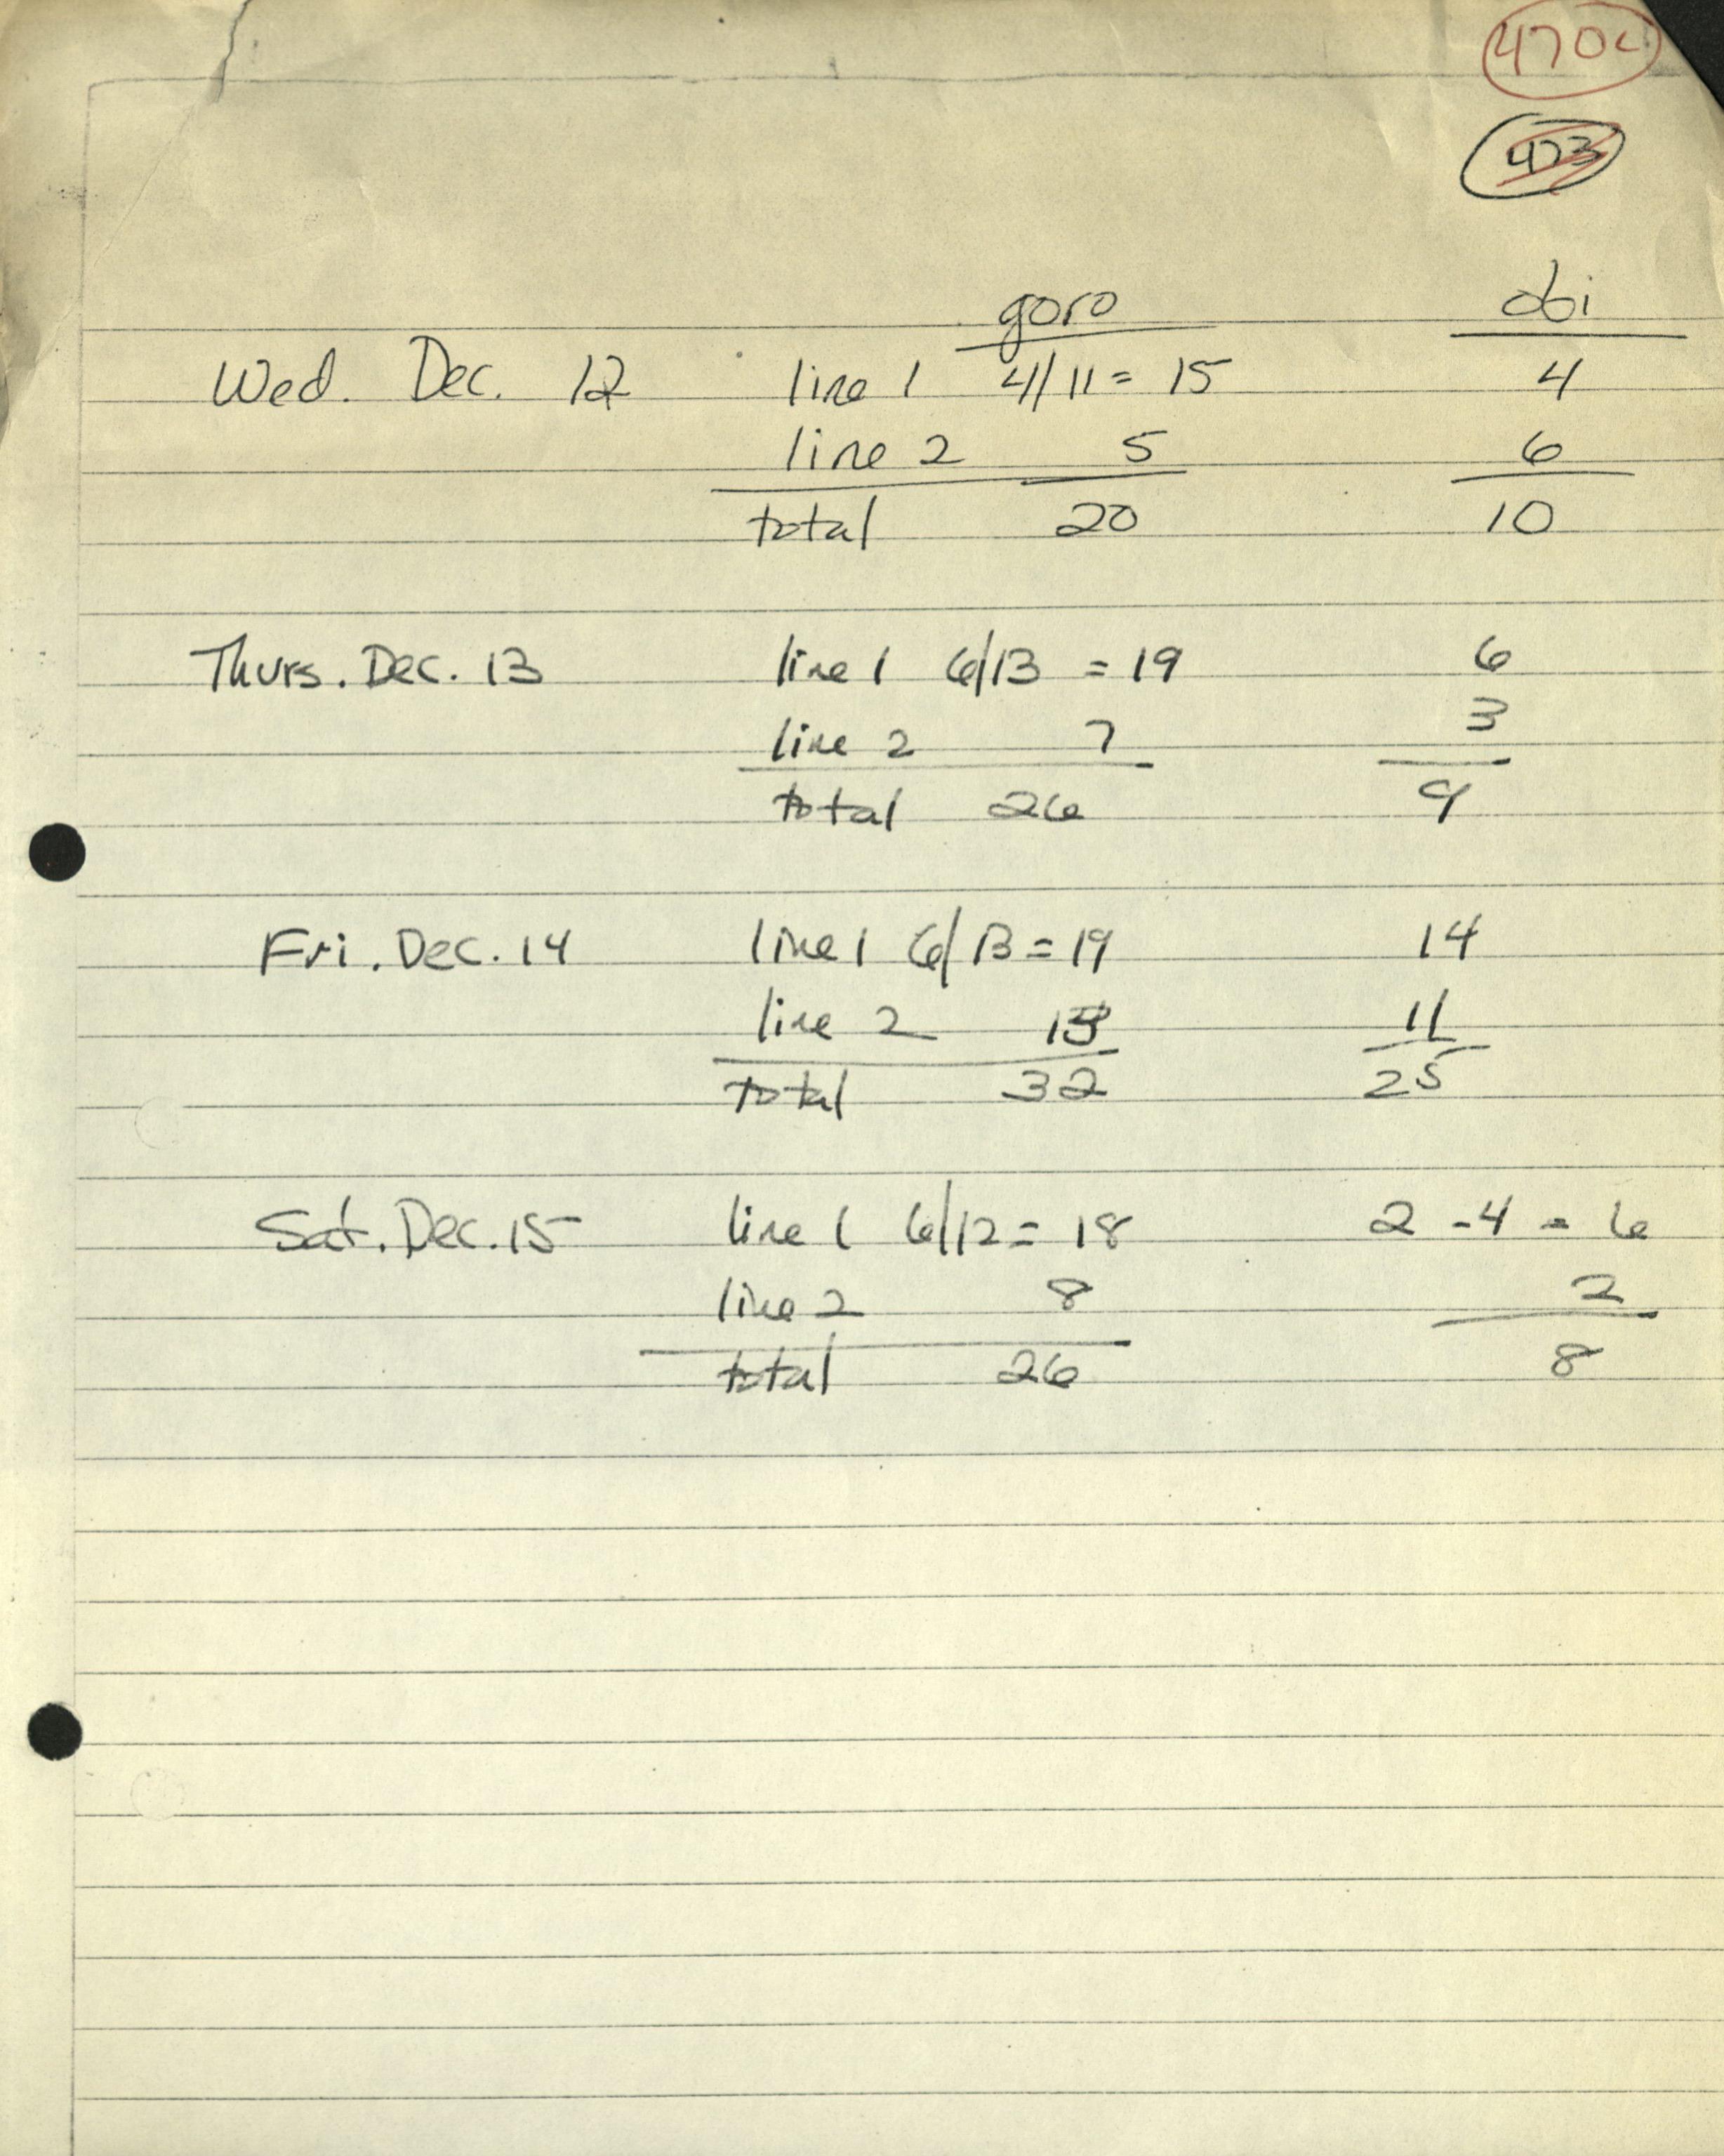 470c
423
goro obi
Wed. Dec. 12 line 1 4/11 = 15 4
line 2 5 6
total 20 10
Thurs. Dec. 13 line 1 6/13 = 19 6
line 2 7 3
total 26 9
Fri. Dec. 14 line 1 6/13 = 19 14
line 2 13 11
total 32 25
Sat. Dec. 15 line 1 6/12 = 18 2 - 4 = 6
line 2 8 2
total 26 8